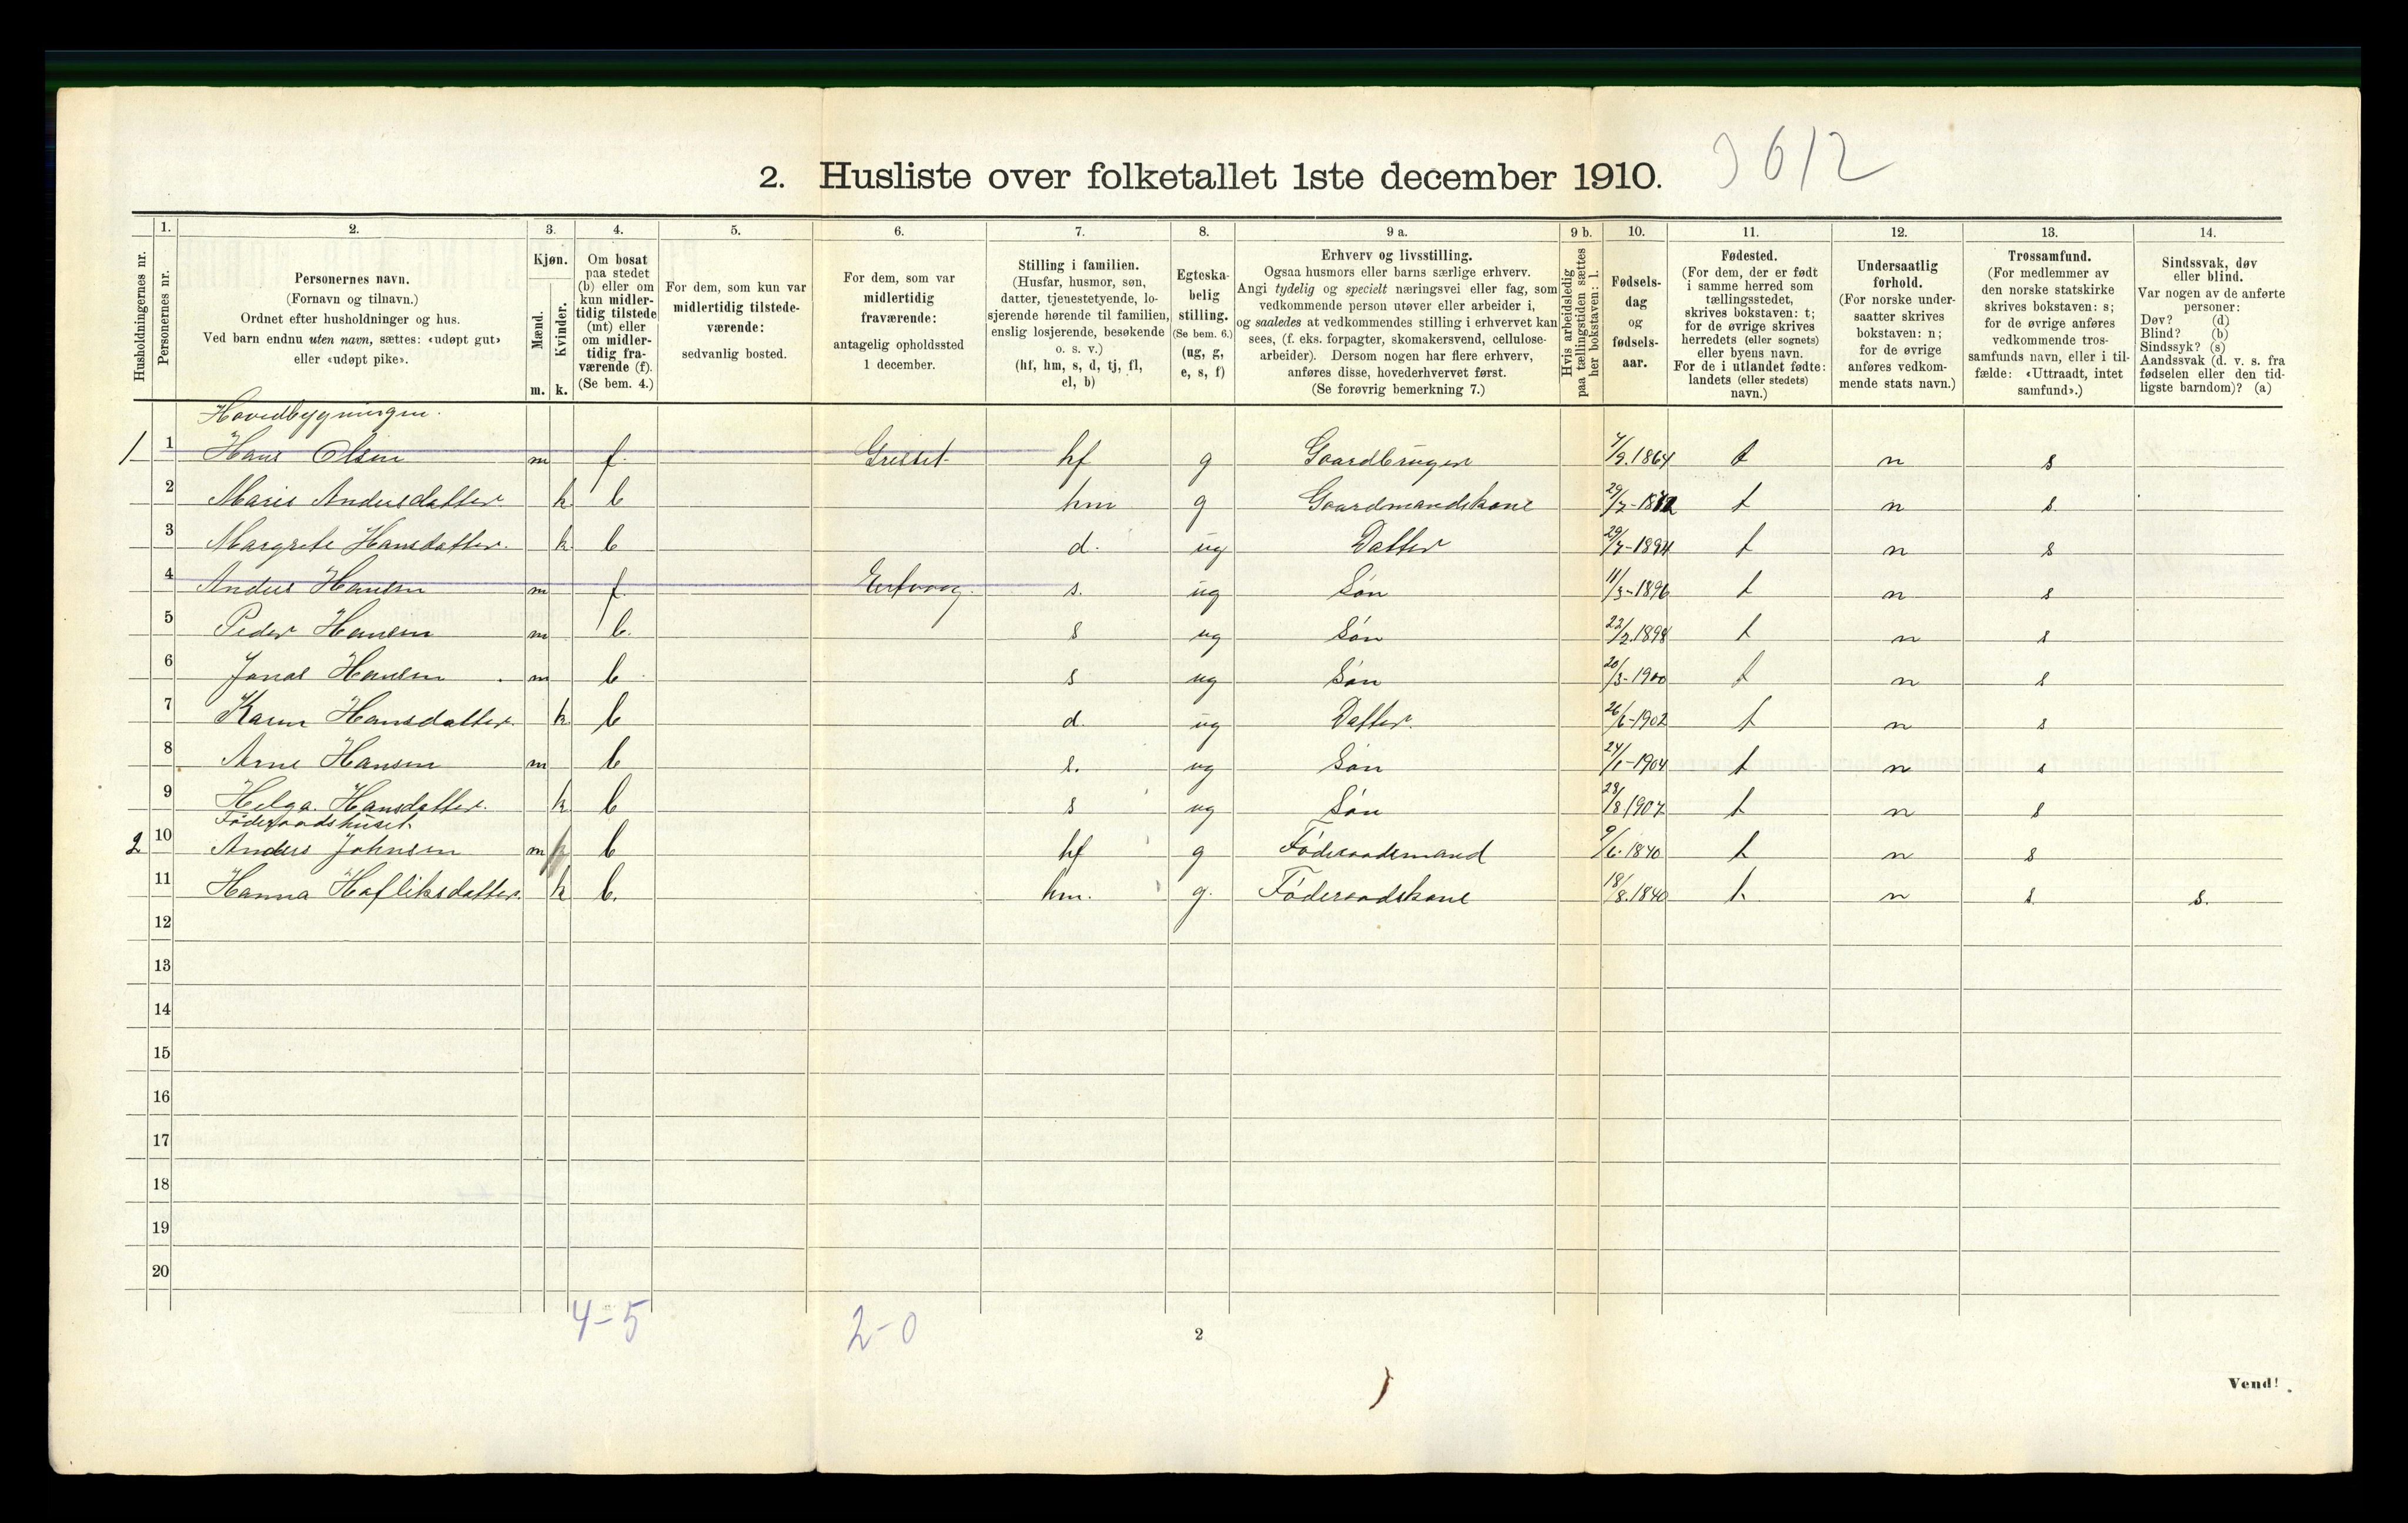 2. Husliste over folketallet 1ste december 1910. 3612
1. 2. 3. 4. 5. 6. 7. 8. 9 a. 9 b. 10. 11. 12. 13. 14.
Husholdningernes nr.
Personernes nr.
Personernes navn.
(Fornavn og tilnavn.)
Ordnet efter husholdninger og hus.
Ved barn endnu uten navn, sættes: «udøpt gut»
eller «udøpt pike».
Kjøn.
Mænd.
Kvinder.
m. k.
Om bosat
paa stedet
(b) eller om
kun midler-
tidig tilstede
(mt) eller
om midler-
tidig fra-
værende (f).
(Se bem. 4.)
For dem, som kun var
midlertidig tilstede-
værende:
sedvanlig bosted.
For dem, som var
midlertidig
fraværende:
antagelig opholdssted
1 december.
Stilling i familien.
(Husfar, husmor, søn,
datter, tjenestetyende, lo-
sjerende hørende til familien,
enslig losjerende, besøkende
o. s. v.)
(hf, hm, s, d, tj, fl,
el, b)
Egteska-
belig
stilling.
(Se bem. 6.)
(ug, g,
e, s, f)
Erhverv og livsstilling.
Ogsaa husmors eller barns særlige erhverv.
Angi tydelig og specielt næringsvei eller fag, som
vedkommende person utøver eller arbeider i,
og saaledes at vedkommendes stilling i erhvervet kan
sees, (f. eks. forpagter, skomakersvend, cellulose-
arbeider). Dersom nogen har flere erhverv,
anføres disse, hovederhvervet først.
(Se forøvrig bemerkning 7.)
Hvis arbeidsledig
paa tællingstiden sættes
her bokstaven: l.
Fødsels-
dag
og
fødsels-
aar.
Fødested.
(For dem, der er født
i samme herred som
tællingsstedet,
skrives bokstaven: t;
for de øvrige skrives
herredets (eller sognets)
eller byens navn.
For de i utlandet fødte:
landets (eller stedets)
navn.)
Undersaatlig
forhold.
(For norske under-
saatter skrives
bokstaven: n;
for de øvrige
anføres vedkom-
mende stats navn.)
Trossamfund.
(For medlemmer av
den norske statskirke
skrives bokstaven: s;
for de øvrige anføres
vedkommende tros-
samfunds navn, eller i til-
fælde: «Uttraadt, intet
samfund».)
Sindssvak, døv
eller blind.
Var nogen av de anførte
personer:
Døv? (d)
Blind? (b)
Sindssyk? (s)
Aandssvak (d. v. s. fra
fødselen eller den tid-
ligste barndom)? (a)
Hovedbygningen.
1 1 Hans Olsen m f Grisset hf g Gaardbruger 7/9.1864 t n s
2 Maris Andersdatter k b hm g Gaardmandskone 29/7-1872 t n s.
3 Margrete Hansdatter. k. b d. ug Datter 29/7-1894 t n s
4 Anders Hansen m f s. ug Søn 11/3-1896 t n s
5 Peder Hansen m b. s ug Søn 22/2.1898 t n s
6 Jonas Hansen m b s ug Søn 20/3-1900 t n s
7 Karen Hansdatter. k b d. ug Datter. 26/6-1902 t n s
8 Arne Hansen m b s. ug Søn 24/1-1904 t n s
9 Helga. Hansdatter. k b s ug Søn 28/8.1907 t n s
Føderaadshuset.
2 10 Anders Johnsen m b hf g Føderaadsmand 9/6.1840 t n s
11 Hanna Hafliksdatter. k b. hm. g. Føderaadskone 18/8.1840 t. n s. s.
12
13
14
15
16
17
18
19
20
4-5 2-0
2
Vend!